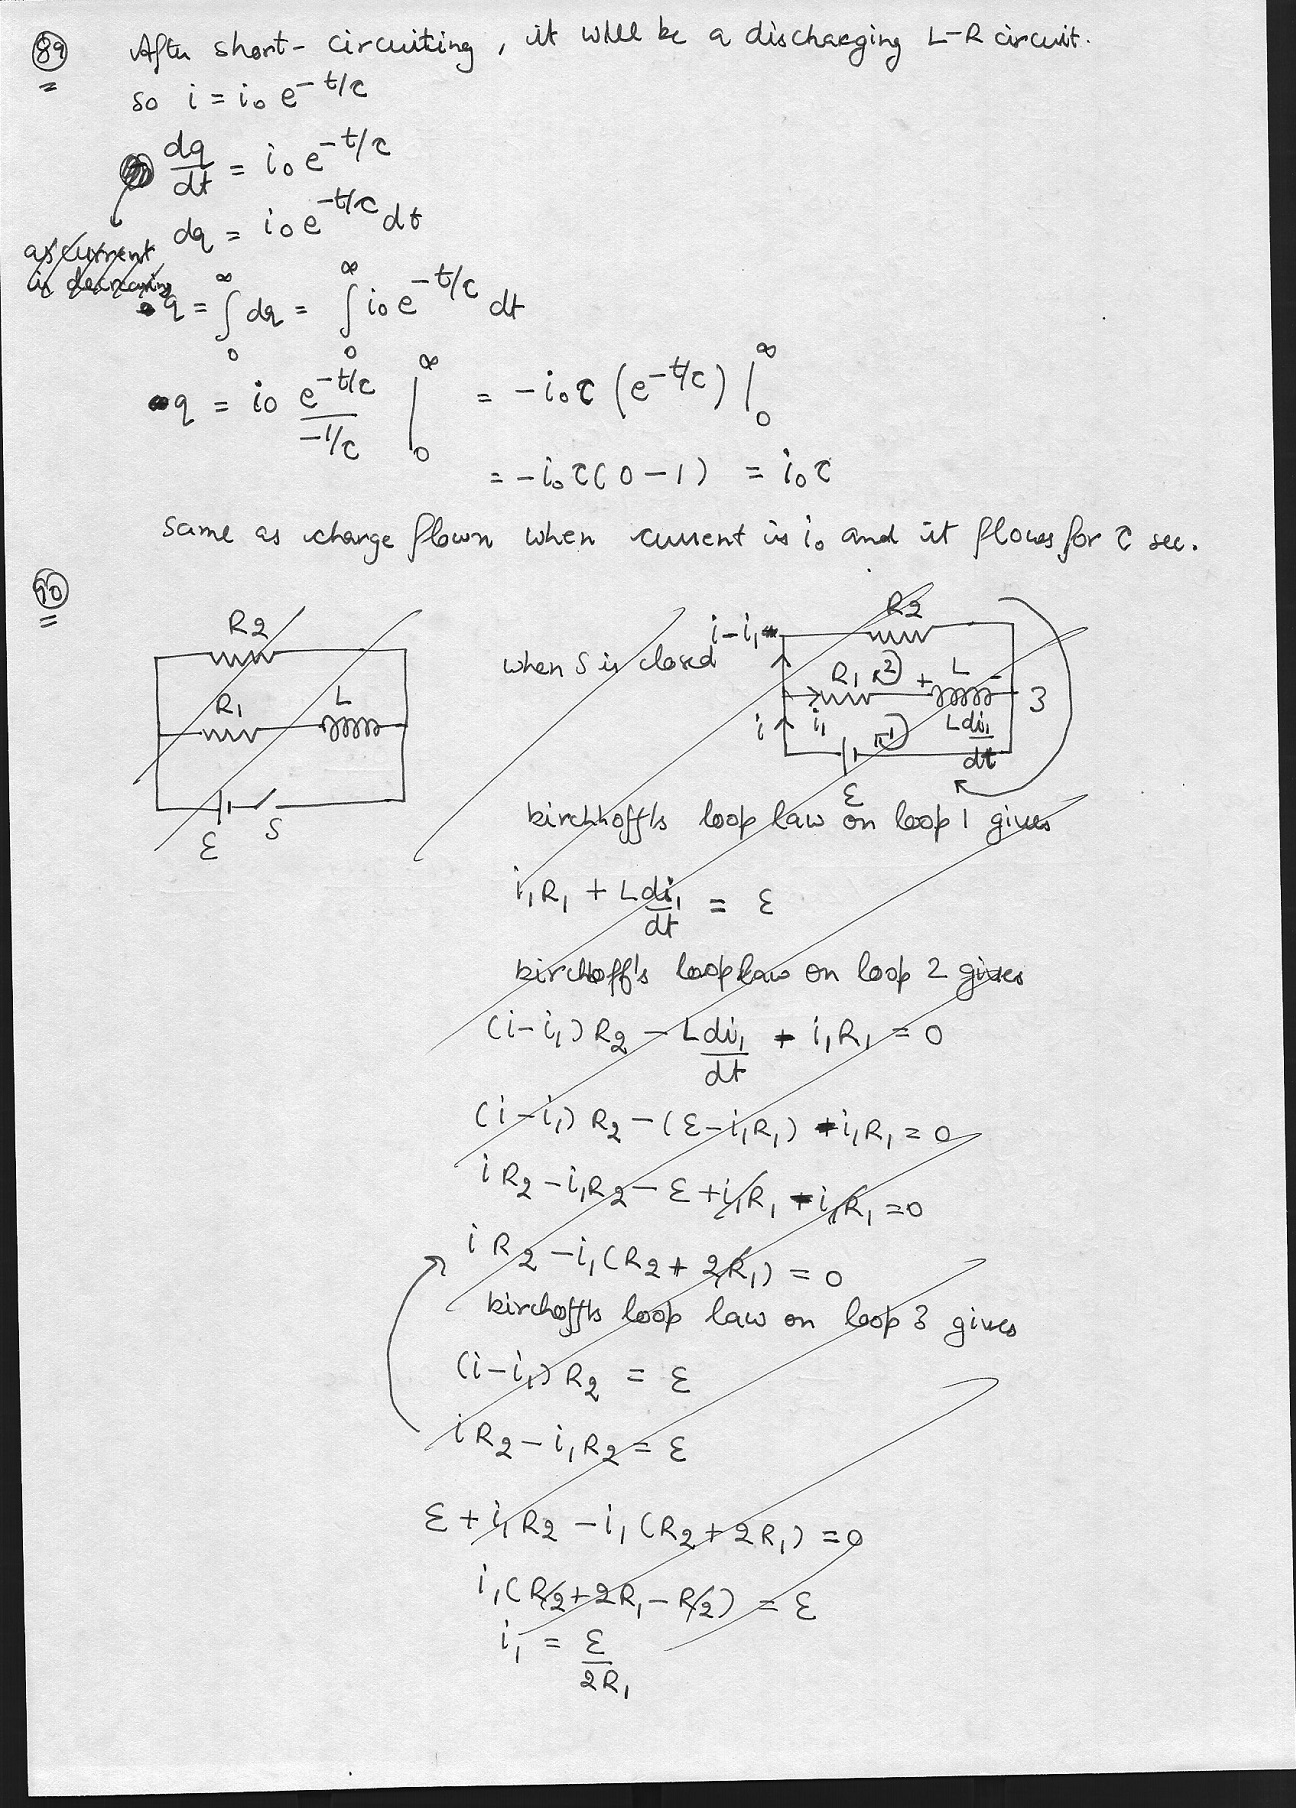 89
After short-circuiting, it will be a discharging L-R circuit.
so i = i₀ e^{-t/τ}
dq/dt = i₀ e^{-t/τ}
dq = i₀ e^{-t/τ} dt
as current
is decreasing
q = ∫₀^∞ dq = ∫₀^∞ i₀ e^{-t/τ} dt
q = i₀ e^{-t/τ}/(-1/τ) |₀^∞ = -i₀τ (e^{-t/τ}) |₀^∞
= -i₀τ(0-1) = i₀τ
Same as charge flown when current is i₀ and it flows for τ sec.
90
R2
R1 L
ε S
when S is closed
i-i₁ R2
R1 2 + L - 3
i i₁ 1 L di₁/dt
ε
kirchhoff's loop law on loop 1 gives
i₁R₁ + L di₁/dt = ε
kirchoff's loop law on loop 2 gives
(i-i₁)R2 - L di₁/dt - i₁R₁ = 0
(i-i₁) R2 - (ε-i₁R₁) - i₁R₁ = 0
iR2 - i₁R2 - ε + i₁R₁ - i₁R₁ = 0
iR2 - i₁(R2 + 2R₁) = 0
kirchoff's loop law on loop 3 gives
(i-i₁) R2 = ε
iR2 - i₁R2 = ε
ε + i₁R2 - i₁(R2 + 2R₁) = 0
i₁(R2 + 2R₁ - R2) = ε
i₁ = ε/2R₁